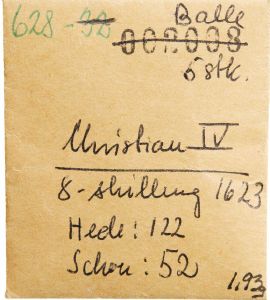 628-92
Balle
002008
5 stk.
Christian IV
8-skilling 1623
Hede: 122
Schou: 52
1,93